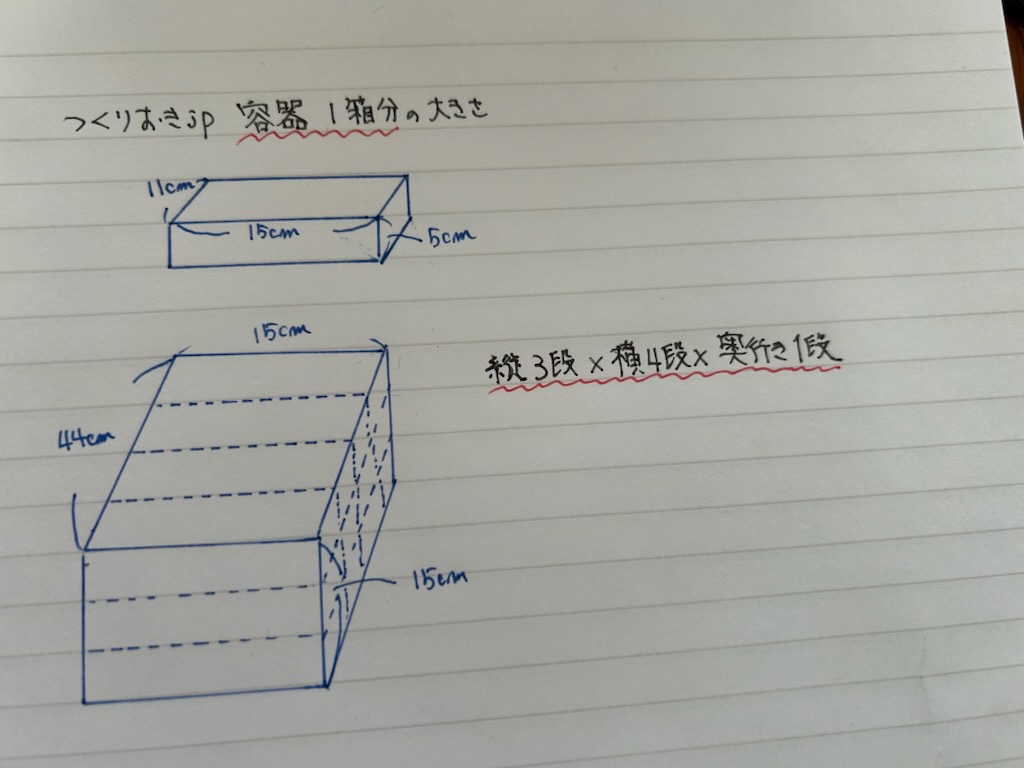 つくりおきJP 容器 1箱分の大きさ
11cm
15cm
5cm
15cm
縦3段×横4段×奥行き1段
44cm
15cm